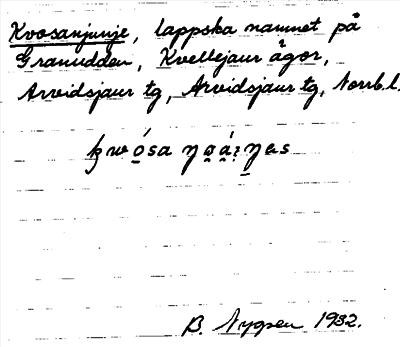 Kvosanjunje, lappska namnet på
Granudden, Kvellejaur ägor,
Arvidsjaur tg, Arvidsjaur tg, Norrb. l.
B. Nygren 1932.